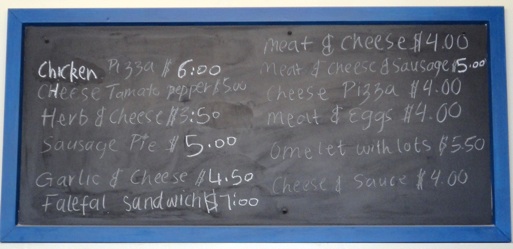 Chicken Pizza $ 6:00
CHEESE Tomato pepper $5:00
Herb & cheese $3:50
Sausage Pie $ 5.00
Garlic & Cheese $4.50
Falefal sandwich $7:00
meat & cheese $4.00
meat & cheese & Sausage $5.00
cheese Pizza $4.00
meat & Eggs $4.00
omelet with lots $5.50
cheese & sauce $4.00